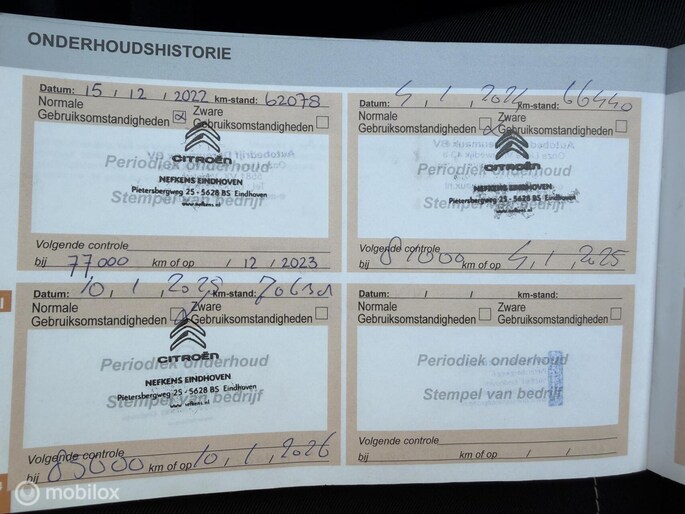 ONDERHOUDSHISTORIE
Datum: 15 / 12 / 2022 km-stand: 62078
Normale Gebruiksomstandigheden Zware Gebruiksomstandigheden
Periodiek onderhoud
CITROËN
NEFKENS EINDHOVEN
Pietersbergweg 25 - 5628 BS Eindhoven
Stempel van bedrijf
www.nefkens.nl
Volgende controle
bij 77.000 km of op / 12 / 2023
Datum: 4 / 1 / 2024 km-stand: 66440
Normale Gebruiksomstandigheden Zware Gebruiksomstandigheden
Periodiek onderhoud
CITROËN
NEFKENS EINDHOVEN
Pietersbergweg 25 - 5628 BS Eindhoven
Stempel van bedrijf
www.nefkens.nl
Volgende controle
bij 81000 km of op 4 / 1 / 2025
Datum: 10 / 1 / km-stand:
Normale Gebruiksomstandigheden Zware Gebruiksomstandigheden
Periodiek onderhoud
CITROËN
NEFKENS EINDHOVEN
Pietersbergweg 25 - 5628 BS Eindhoven
Stempel van bedrijf
www.nefkens.nl
Volgende controle
bij 85000 km of op 10 / 1 / 2026
Datum: / / km-stand:
Normale Gebruiksomstandigheden Zware Gebruiksomstandigheden
Periodiek onderhoud
Stempel van bedrijf
Volgende controle
bij km of op / /
mobilox